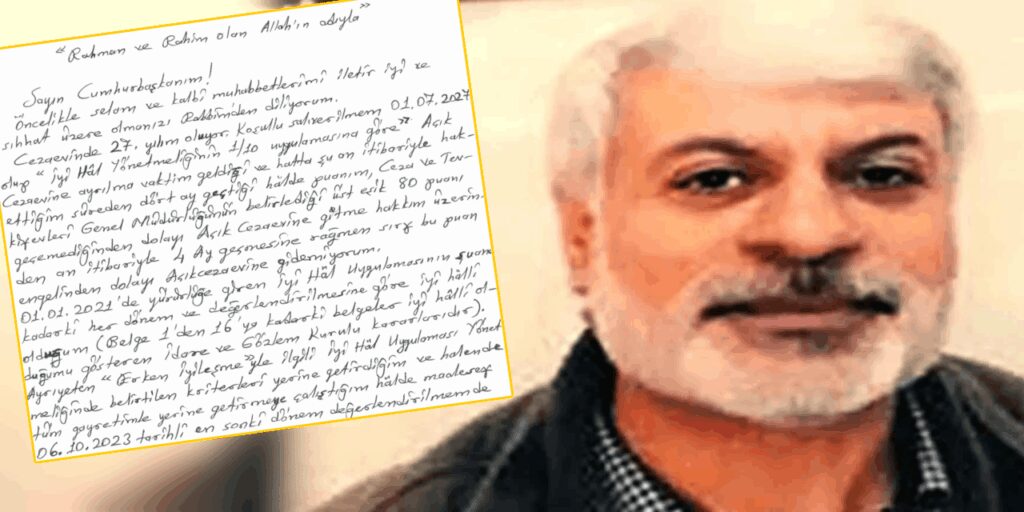 "Rahman ve Rahim olan Allah'ın adıyla"
Sayın Cumhurbaşkanım!
Öncelikle selam ve kalbî muhabbetlerimi iletir iyi ve
sıhhat üzere olmanızı Rabbimden diliyorum.
Cezaevinde 27. yılım oluyor. Koşullu salıverilmem 01.07.2027
olup "İyi Hâl Yönetmeliğinin 1/10 uygulamasına göre" Açık
Cezaevine ayrılma vaktim geldiği ve hatta şu an itibariyle hak-
ettiğim süreden dört ay geçtiği hâlde puanım, Ceza ve Tev-
kifevleri Genel Müdürlüğünün belirlediği üst eşik 80 puanı
geçemediğinden dolayı Açık Cezaevine gitme hakkım üzerin-
den an itibariyle 4 Ay geçmesine rağmen sırf bu puan
engelinden dolayı Açıkcezaevine gidemiyorum.
01.01.2021'de yürürlüğe giren İyi Hâl Uygulamasının şuana
kadarki her dönem ve değerlendirilmesine göre iyi hâlli
olduğum (Belge 1'den 16'ya kadarki belgeler iyi hâlli ol-
duğumu gösteren İdare ve Gözlem Kurulu kararlarıdır).
Ayrıyeten "Erken İyileşme"yle ilgili İyi Hâl Uygulaması Yönet
meliğinde belirtilen kriterleri yerine getirdiğim ve halende
tüm gayretimle yerine getirmeye çalıştığım hâlde maalesef
06.10.2023 tarihli en sonki dönem değerlendirilmemde